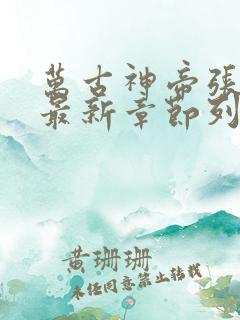 萬古神帝張
最新章節列
黄珊珊
未经同意禁止转载